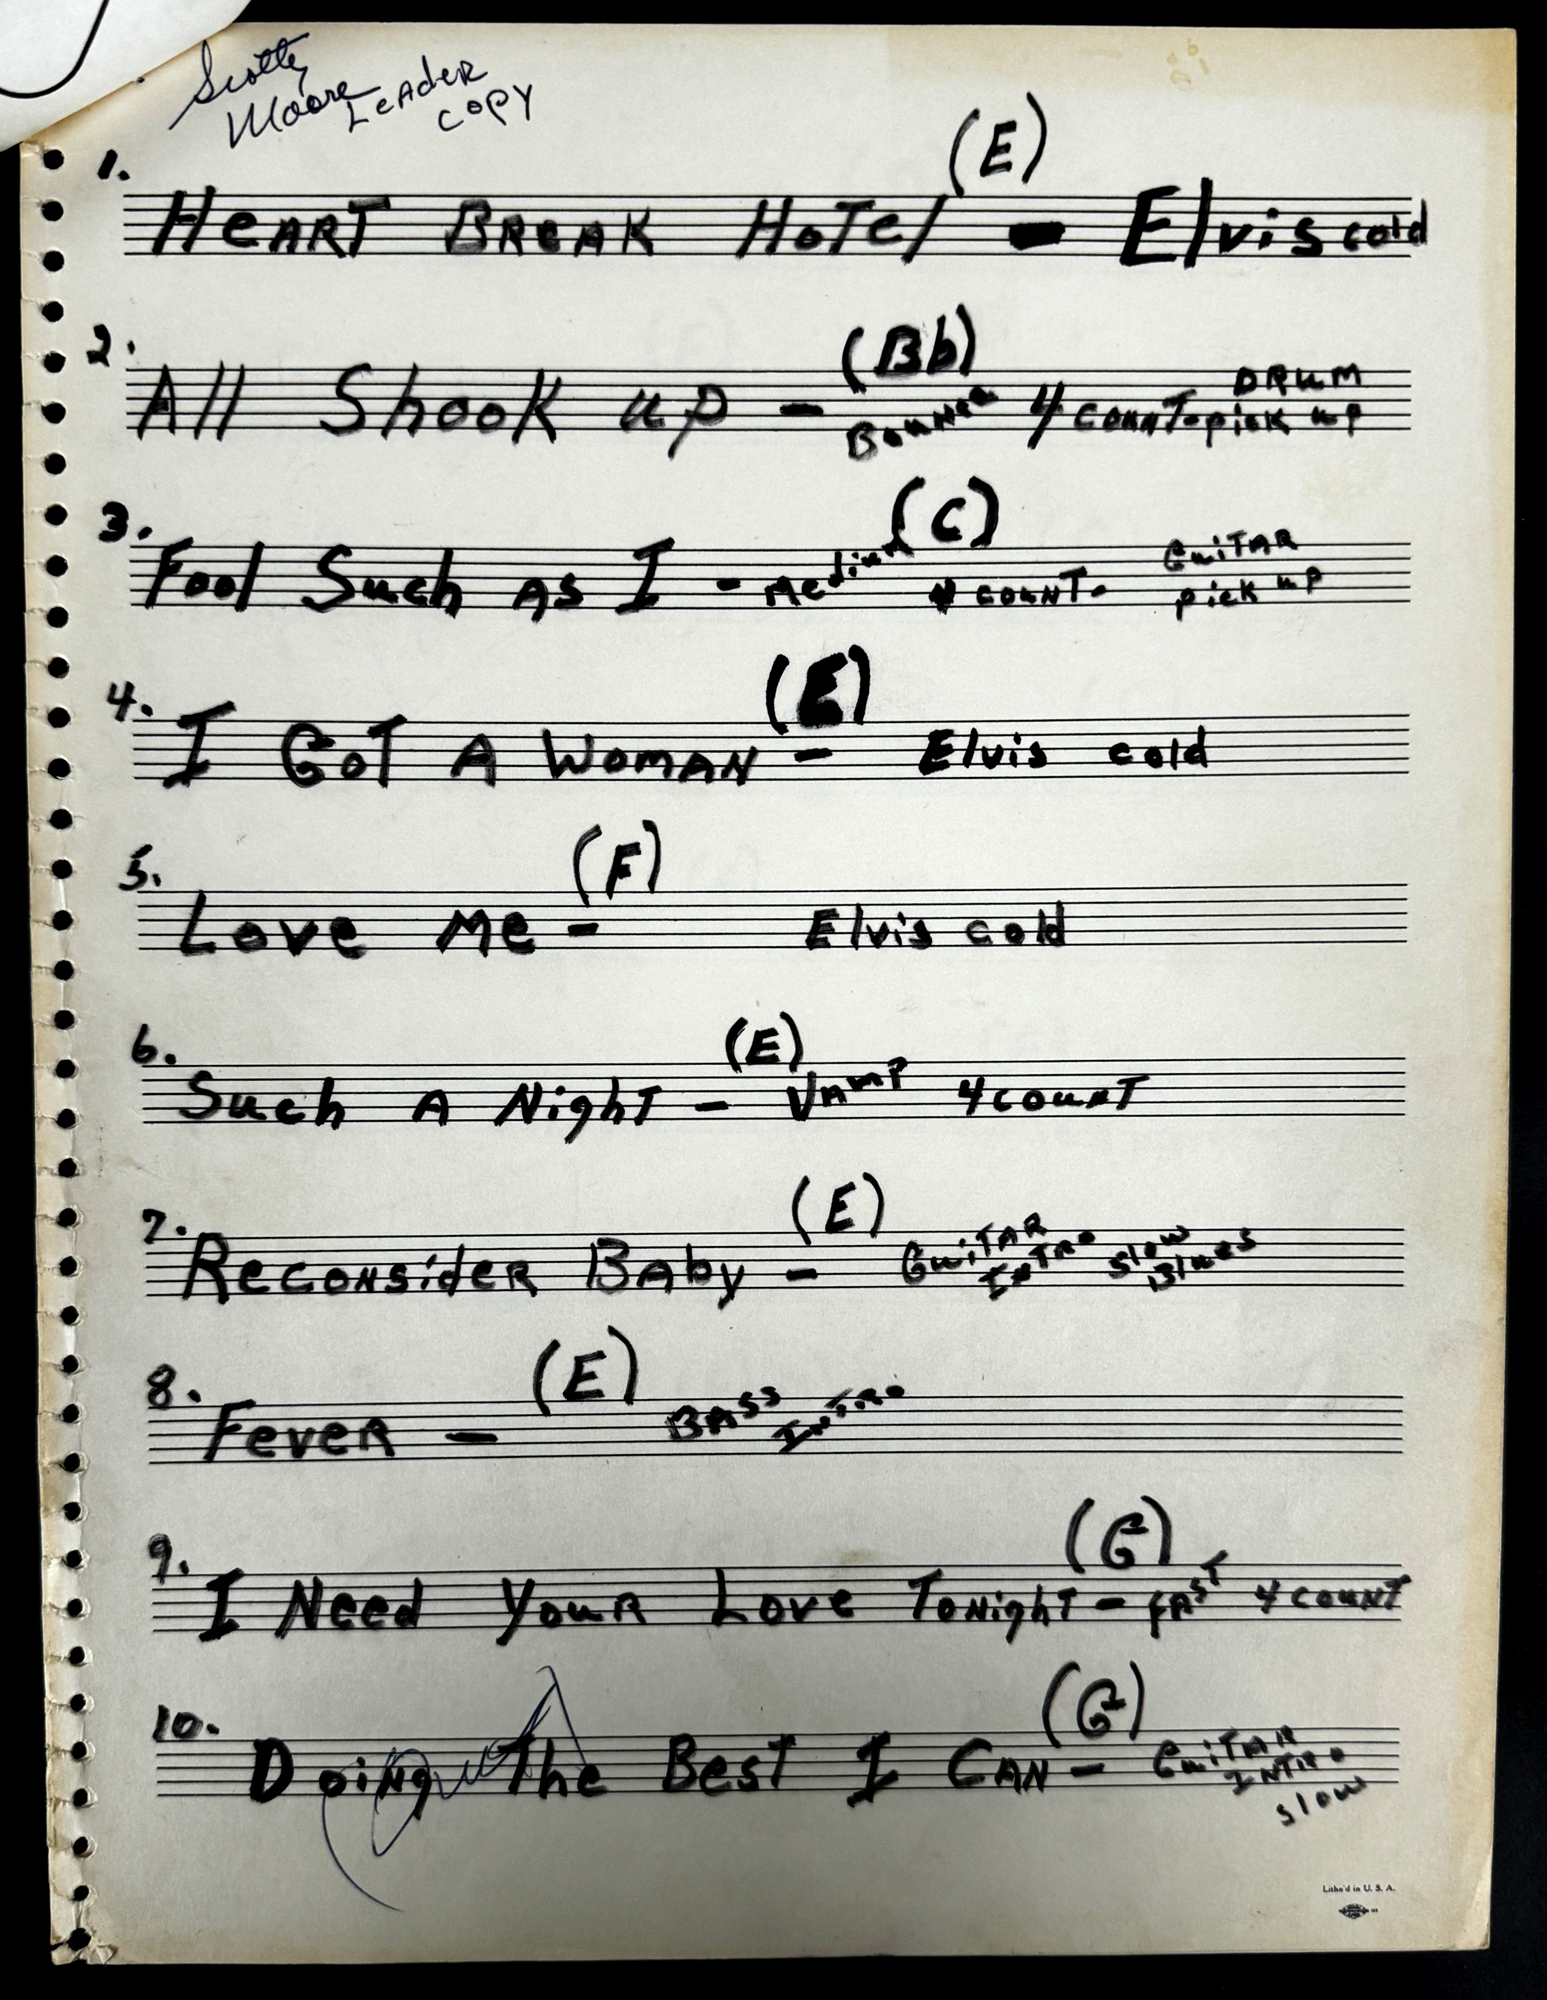 Scotty
Moore Leader
copy
1. Heart Break Hotel (E) - Elvis cold
2. All Shook up - (Bb) Bounce 4 count-pick up DRUM
3. Fool Such As I - Medium (C) 4 count- Guitar pick up
4. I Got A Woman (E) - Elvis cold
5. Love Me - (F) Elvis cold
6. Such A Night - (E) Vamp 4 count
7. Reconsider Baby - (E) Guitar Intro Slow Blues
8. Fever - (E) Bass Intro
9. I Need Your Love Tonight - (G) fast 4 count
10. Doing The Best I Can - (G) Guitar Intro slow
Litho'd in U. S. A.